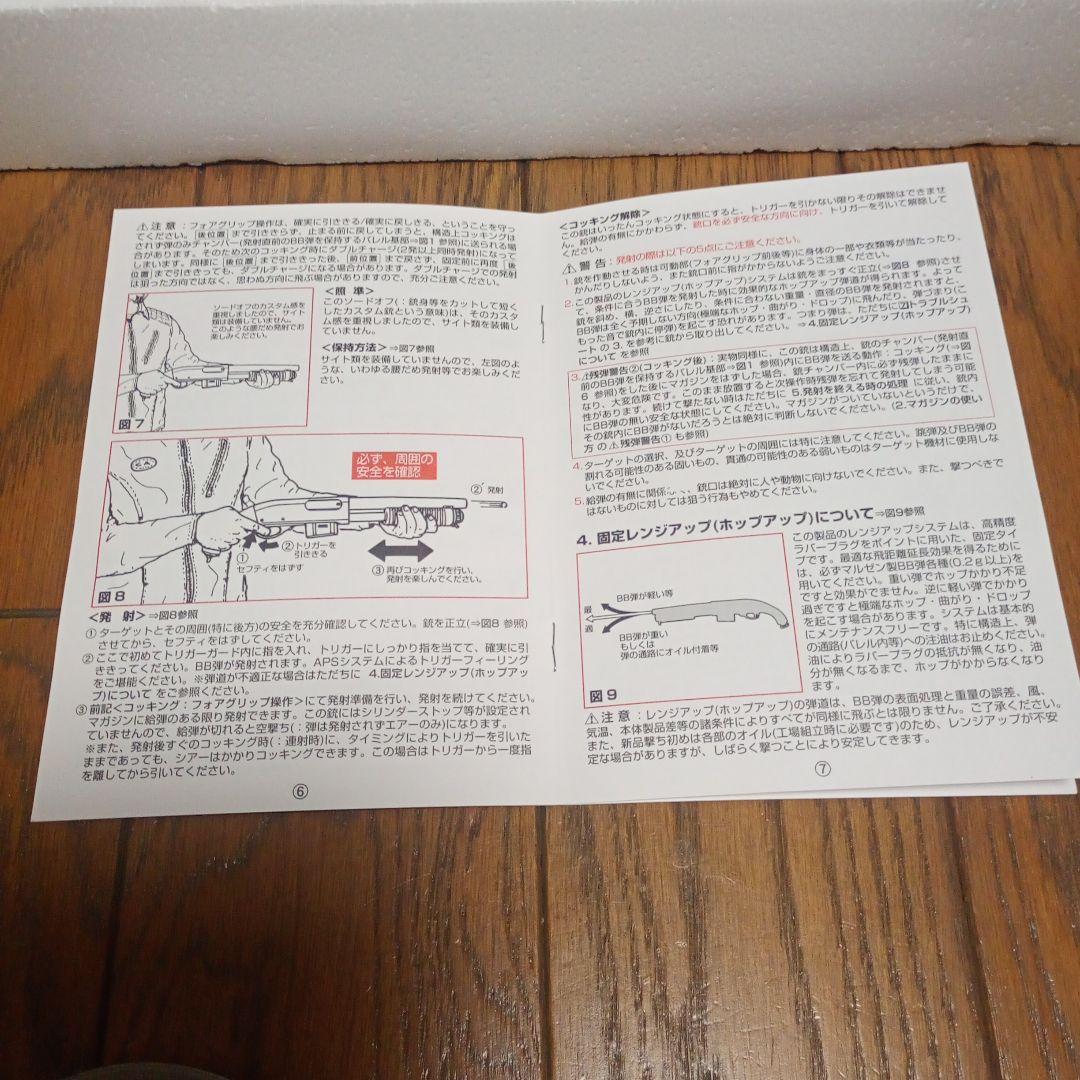 ⚠注意：フォアグリップ操作は、確実に引ききる/確実に戻しきる、ということを守っ
てください。[後位置]まで引ききらず、止まる前に戻してしまうと、構造上コッキングは
されず弾のみチャンバー(発射直前のBB弾を保持するバレル基部⇒図1 参照)に送られる場
合があります。そのため次のコッキング時にダブルチャージ(2発以上同時発射)になって
しまいます。同様に[後位置]まで引ききった後、[前位置]まで戻さず、固定前に再度[後
位置]まで引ききっても、ダブルチャージになる場合があります。ダブルチャージでの発射
は狙った方向ではなく、思わぬ方向に飛ぶ場合がありますので、充分ご注意ください。
ソードオフのカスタム感を
重視しましたので、サイト
類は装備していません。
このような腰だめ発射でお
楽しみください。
図7
＜照 準＞
このソードオフ(：銃身等をカットして短く
したカスタム銃という意味)は、そのカスタ
ム感を重視しましたので、サイト類を装備し
ていません。
＜保持方法＞⇒図7参照
サイト類を装備していませんので、左図のよ
うな、いわゆる腰だめ発射等でお楽しみくだ
さい。
必ず、周囲の
安全を確認
②発射
②トリガーを
引ききる
①
セフティをはずす
③再びコッキングを行い、
発射を楽しんでください。
図8
＜発 射＞⇒図8参照
①ターゲットとその周囲(特に後方)の安全を充分確認してください。銃を正立(⇒図8 参照)
させてから、セフティをはずしてください。
②ここで初めてトリガーガード内に指を入れ、トリガーにしっかり指を当てて、確実に引
ききってください。BB弾が発射されます。APSシステムによるトリガーフィーリング
をご堪能ください。※弾道が不適正な場合はただちに 4.固定レンジアップ(ホップアッ
プ)について をご参照ください。
③前記＜コッキング：フォアグリップ操作＞にて発射準備を行い、発射を続けてください。
マガジンに給弾のある限り発射できます。この銃にはシリンダーストップ等が設定され
ていませんので、給弾が切れると空撃ち(：弾は発射されずエアーのみ)になります。
※また、発射後すぐのコッキング時(：連射時)に、タイミングによりトリガーを引いた
ままであっても、シアーはかかりコッキングできます。この場合はトリガーから一度指
を離してから引いてください。
⑥
＜コッキング解除＞
この銃はいったんコッキング状態にすると、トリガーを引かない限りその解除はできませ
ん。給弾の有無にかかわらず、銃口を必ず安全な方向に向け、トリガーを引いて解除して
ください。
⚠警告：発射の際は以下の5点にご注意ください。
1.銃を作動させる時は可動部(フォアグリップ前後等)に身体の一部や衣類等が当たったり、
かんだりしないよう、また銃口前に指がかからないようご注意ください。
2.この製品のレンジアップ(ホップアップ)システムは銃をまっすぐ正立(⇒図8 参照)させ
て、条件に合うBB弾を発射した時に効果的なホップアップ弾道が得られます。よって
銃を斜め、横、逆さにしたり、条件に合わない重量・直径のBB弾を発射されますと、
BB弾は全く予期しない方向(極端なホップ・曲がり・ドロップ)に飛んだり、弾づまり(こ
もった音で銃内に停弾)を起こす恐れがあります。つまり弾は、ただちに 2)トラブルシュ
ートの 3. を参考に銃から取り出してください。⇒4.固定レンジアップ(ホップアップ)
について を参照
3.⚠残弾警告②(コッキング後)：実物同様に、この銃は構造上、銃のチャンバー(発射直
前のBB弾を保持するバレル基部⇒図1 参照)内にBB弾を送る動作：コッキング(⇒図
6 参照)をした後にマガジンをはずした場合、銃チャンバー内に必ず残弾したままに
なり、大変危険です。このまま放置すると次操作時残弾を忘れて発射してしまう可能
性があります。続けて撃たない時はただちに 5.発射を終える時の処理 に従い、銃内
にBB弾の無い安全な状態にしてください。マガジンがついていないというだけで、
その銃内にBB弾がないだろうとは絶対に判断しないでください。(2.マガジンの使い
方 の⚠残弾警告① も参照)
4.ターゲットの選択、及びターゲットの周囲には特に注意してください。跳弾及びBB弾の
割れる可能性のある固いもの、貫通の可能性のある弱いものはターゲット機材に使用しな
いでください。
5.給弾の有無に関係なく、銃口は絶対に人や動物に向けないでください。また、撃つべきで
はないものに対しては狙う行為もやめてください。
4. 固定レンジアップ(ホップアップ)について⇒図9参照
BB弾が軽い等
最
適
BB弾が重い
もしくは
弾の通路にオイル付着等
図9
この製品のレンジアップシステムは、高精度
ラバープラグをポイントに用いた、固定タイ
プです。最適な飛距離延長効果を得るために
は、必ずマルゼン製BB弾各種(0.2g以上)を
用いてください。重い弾でホップかかり不足
ですと効果がでません。逆に軽い弾でかかり
過ぎですと極端なホップ・曲がり・ドロップ
を起こす場合があります。システムは基本的
にメンテナンスフリーです。特に構造上、弾
の通路(バレル内等)への注油はお止めください。
油によりラバープラグの抵抗が無くなり、油
分が無くなるまで、ホップがかからなくなり
ます。
⚠注意：レンジアップ(ホップアップ)の弾道は、BB弾の表面処理と重量の誤差、風、
気温、本体製品差等の諸条件によりすべてが同様に飛ぶとは限りません。ご了承ください。
また、新品撃ち初めは各部のオイル(工場組立時に必要です)のため、レンジアップが不安
定な場合がありますが、しばらく撃つことにより安定してきます。
⑦